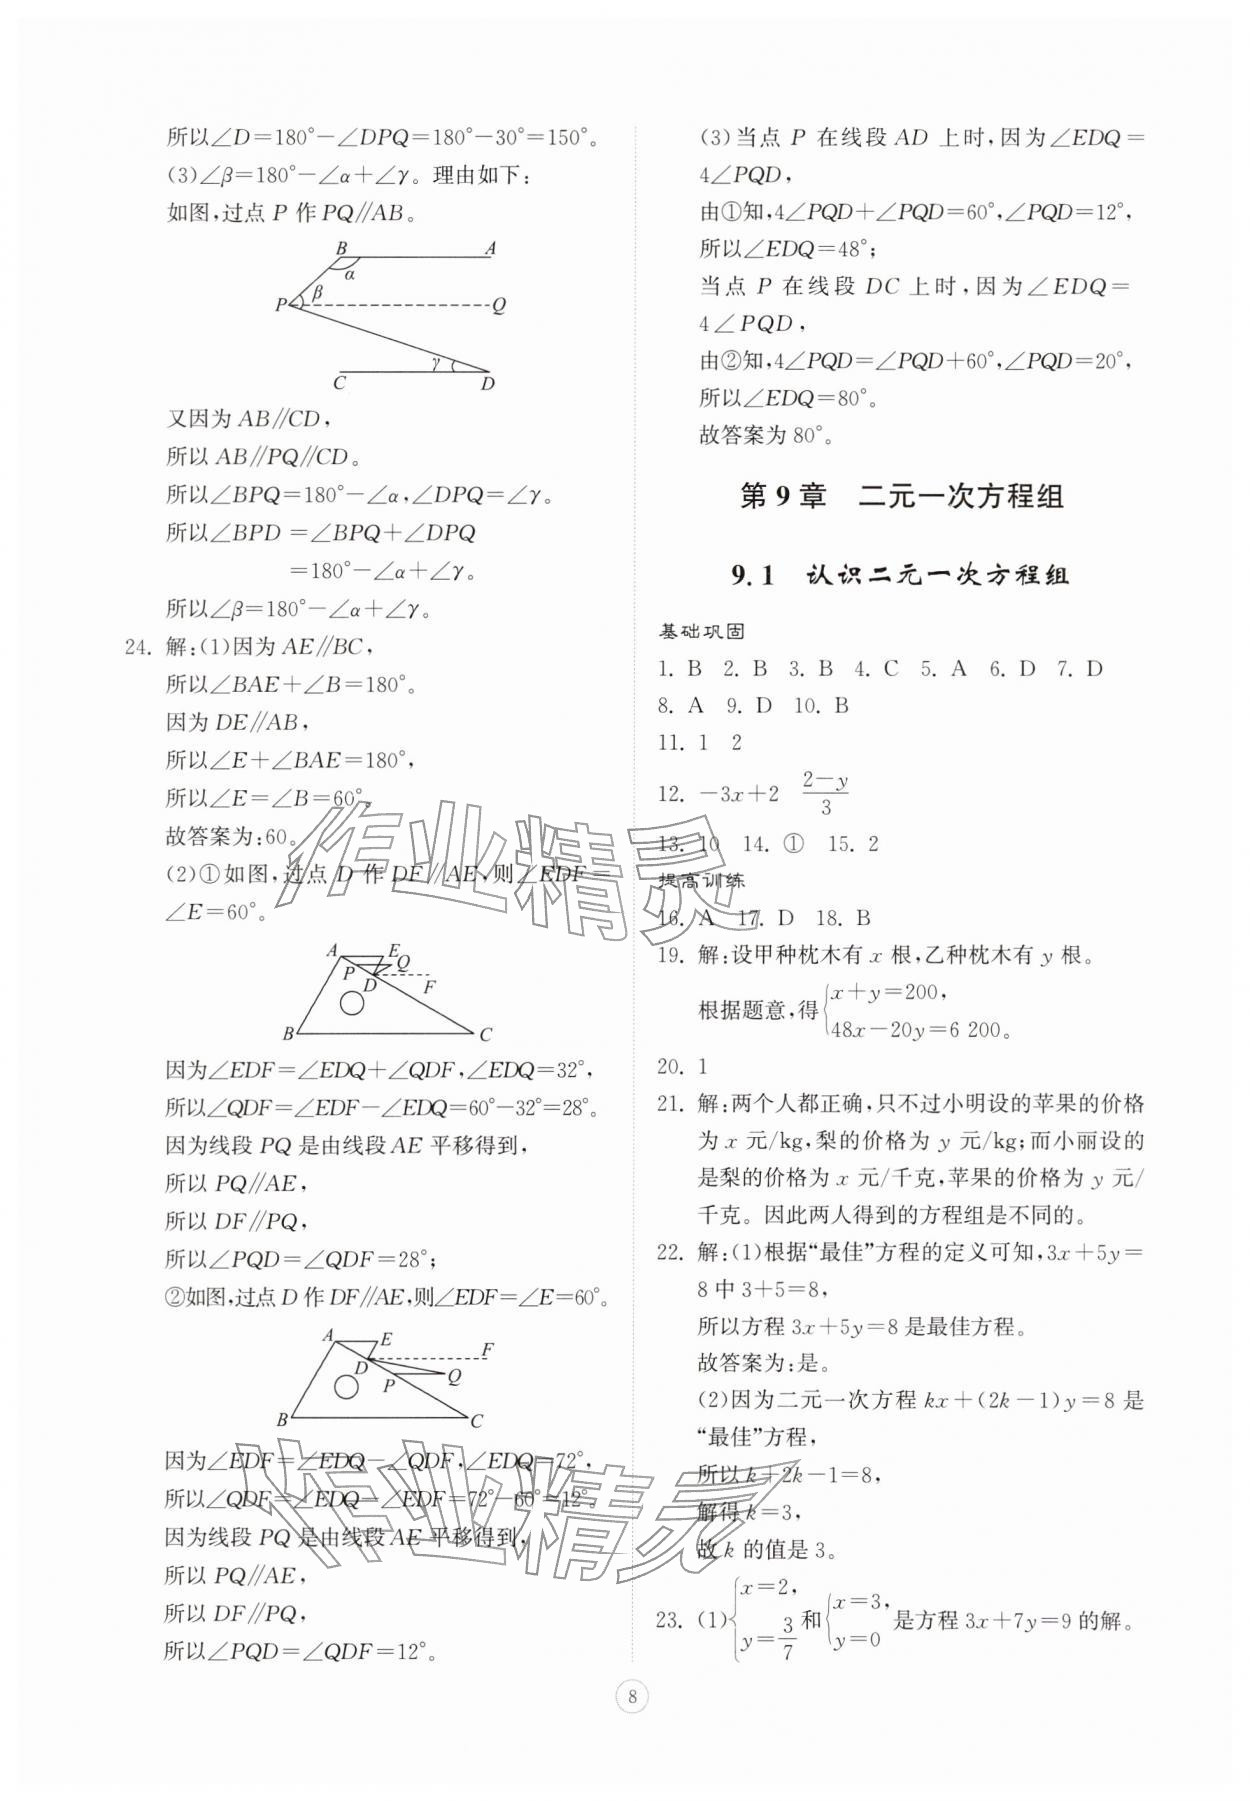 所以∠D=180°-∠DPQ=180°-30°=150°。
(3)∠β=180°-∠α+∠γ。理由如下:
如图,过点 P 作 PQ∥AB。
B A
α
β
P Q
γ
C D
又因为 AB∥CD,
所以 AB∥PQ∥CD。
所以∠BPQ=180°-∠α,∠DPQ=∠γ。
所以∠BPD =∠BPQ+∠DPQ
=180°-∠α+∠γ。
所以∠β=180°-∠α+∠γ。
24. 解:(1)因为 AE∥BC,
所以∠BAE+∠B=180°。
因为 DE∥AB,
所以∠E+∠BAE=180°,
所以∠E=∠B=60°。
故答案为:60。
(2)①如图,过点 D 作 DF∥AE,则∠EDF=
∠E=60°。
A E
P Q
D F
B C
因为∠EDF=∠EDQ+∠QDF,∠EDQ=32°,
所以∠QDF=∠EDF-∠EDQ=60°-32°=28°。
因为线段 PQ 是由线段 AE 平移得到,
所以 PQ∥AE,
所以 DF∥PQ,
所以∠PQD=∠QDF=28°;
②如图,过点 D 作 DF∥AE,则∠EDF=∠E=60°。
A E F
D
P Q
B C
因为∠EDF=∠EDQ-∠QDF,∠EDQ=72°,
所以∠QDF=∠EDQ-∠EDF=72°-60°=12°。
因为线段 PQ 是由线段 AE 平移得到,
所以 PQ∥AE,
所以 DF∥PQ,
所以∠PQD=∠QDF=12°。
(3)当点 P 在线段 AD 上时,因为∠EDQ=
4∠PQD,
由①知,4∠PQD+∠PQD=60°,∠PQD=12°,
所以∠EDQ=48°;
当点 P 在线段 DC 上时,因为∠EDQ=
4∠PQD,
由②知,4∠PQD=∠PQD+60°,∠PQD=20°,
所以∠EDQ=80°。
故答案为 80°。
第 9 章 二元一次方程组
9.1 认识二元一次方程组
基础巩固
1. B 2. B 3. B 4. C 5. A 6. D 7. D
8. A 9. D 10. B
11. 1 2
12. -3x+2 (2-y)/3
13. 10 14. ① 15. 2
提高训练
16. A 17. D 18. B
19. 解:设甲种枕木有 x 根,乙种枕木有 y 根。
根据题意,得{x+y=200,
48x-20y=6 200。
20. 1
21. 解:两个人都正确,只不过小明设的苹果的价格
为 x 元/kg,梨的价格为 y 元/kg;而小丽设的
是梨的价格为 x 元/千克,苹果的价格为 y 元/
千克。因此两人得到的方程组是不同的。
22. 解:(1)根据“最佳”方程的定义可知,3x+5y=
8 中 3+5=8,
所以方程 3x+5y=8 是最佳方程。
故答案为:是。
(2)因为二元一次方程 kx+(2k-1)y=8 是
“最佳”方程,
所以 k+2k-1=8,
解得 k=3,
故 k 的值是 3。
23. (1){x=2, y=3/7 和{x=3, y=0 是方程 3x+7y=9 的解。
8
作业精灵
作业精灵